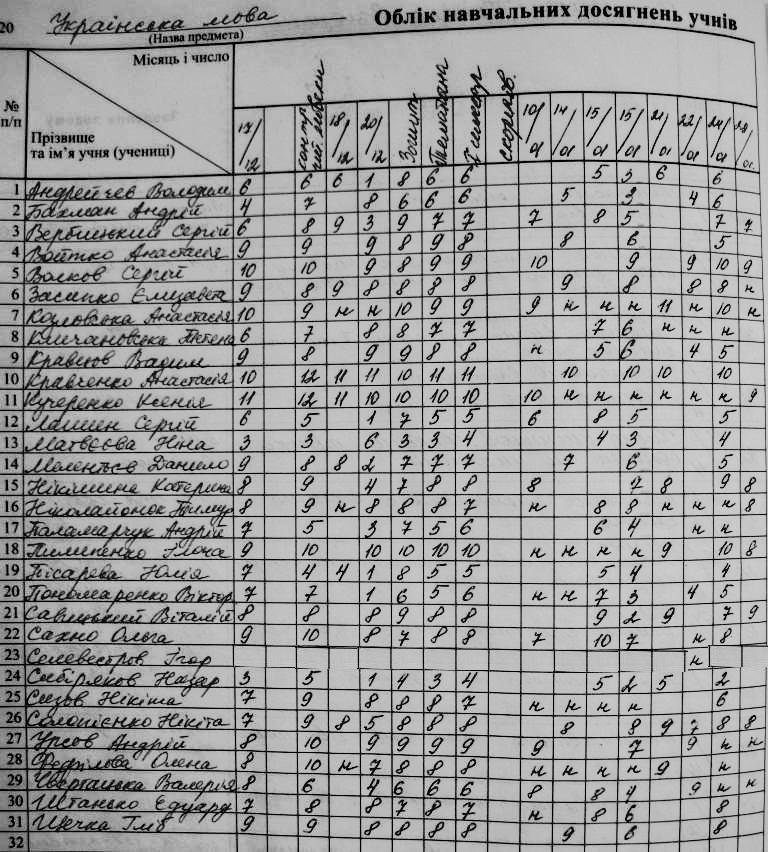 20 Українська мова Облік навчальних досягнень учнів
(Назва предмета)
Місяць і число
№ п/п
Прізвище та ім'я учня (учениці)
17/12 18/12 20/12 Зошит Тематична І семестр скориг. 10/01 14/01 15/01 15/01 21/01 22/01 24/01
1 Андрейчев Володим 6 6 6 1 8 6 6 5 3 6 6
2 Бахман Андрій 4 7 8 6 6 6 5 3 4 6
3 Вербицький Сергій 6 8 9 3 9 7 7 7 8 5 7 7
4 Войтко Анастасія 9 9 9 8 9 8 8 6 5
5 Волков Сергій 10 10 9 8 9 9 10 9 9 10 9
6 Засипко Єлизавета 9 8 9 8 8 8 8 9 8 8 8 н
7 Козловська Анастасія 10 9 н н 10 9 9 9 н н н 11 н 10 н
8 6 7 8 8 7 7 7 6 н н н
9 Кравцов Вадим 9 8 9 9 8 8 н 5 6 4 5
10 Кравченко Анастасія 10 12 11 11 10 11 11 10 10 10 10
11 Кучеренко Ксенія 11 12 11 10 10 10 10 10 н н н н н н 9
12 Лашин Сергій 6 5 1 7 5 5 6 8 5 5
13 Матвєєва Ніна 3 3 6 3 3 4 4 3 4
14 Мелентьєв Данило 9 8 8 2 7 7 7 7 6 5
15 Нікішина Катерина 8 9 4 7 8 8 8 7 8 9 8
16 Ніколайонок Тимур 8 9 н 8 8 8 7 н 8 8 н н н 8
17 Паламарчук Андрій 7 5 3 7 5 6 6 4 н н
18 Пилипенко 9 10 10 10 10 10 н н н н 9 10 8
19 Пісарева Юлія 7 4 4 1 8 5 5 5 4 4
20 Пономаренко Віктор 7 7 1 6 5 6 н н 7 3 4 5
21 Савицький Віталій 8 8 8 9 8 8 9 2 9 7 9
22 Сахно Ольга 9 10 8 7 8 8 7 10 7 н 8
23 Селевестров Ігор н
24 Сибіряков Назар 3 5 1 4 3 4 5 2 5 2
25 Сизов Нікіта 7 9 8 8 8 7 н н н н 6
26 Солопієнко Нікіта 7 9 8 5 8 8 8 8 8 9 7 8 8
27 Урсов Андрій 8 10 9 9 9 9 9 7 9 н н
28 Феділова Олена 8 10 н 7 8 8 8 н н н н 9 н
29 Валерія 8 6 4 6 6 6 8 8 4 9 н н
30 Штанько Едуард 7 8 8 7 8 7 н 8 6 8
31 Щечка Гліб 9 9 8 8 8 8 9 6 8
32